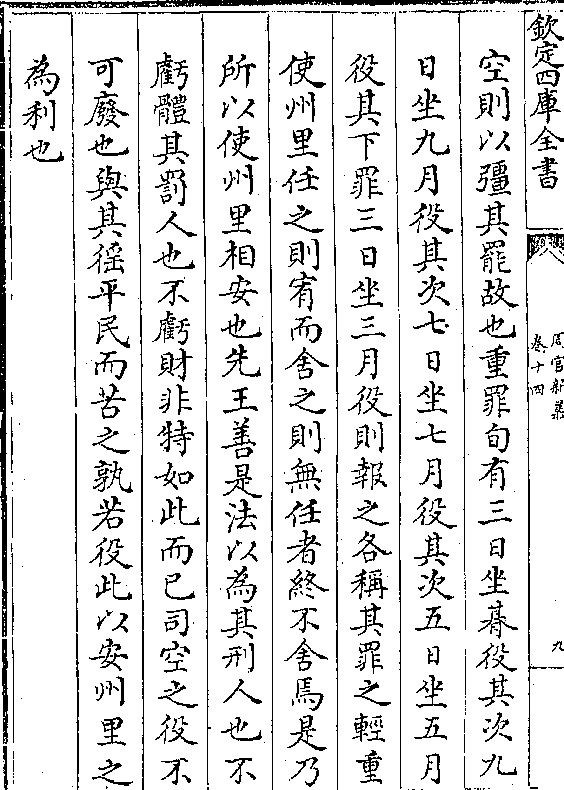 欽定四庫全書
周官新義
卷十四
九
空則以彊其罷故也重罪旬有三日坐朞役其次九
日坐九月役其次七日坐七月役其次五日坐五月
役其下罪三日坐三月役則報之各稱其罪之輕重
使州里任之則宥而舍之則無任者終不舍焉是乃
所以使州里相安也先王善是法以為其刑人也不
虧體其罰人也不虧財非特如此而已司空之役不
可廢也與其徭平民而苦之孰若役此以安州里之
為利也